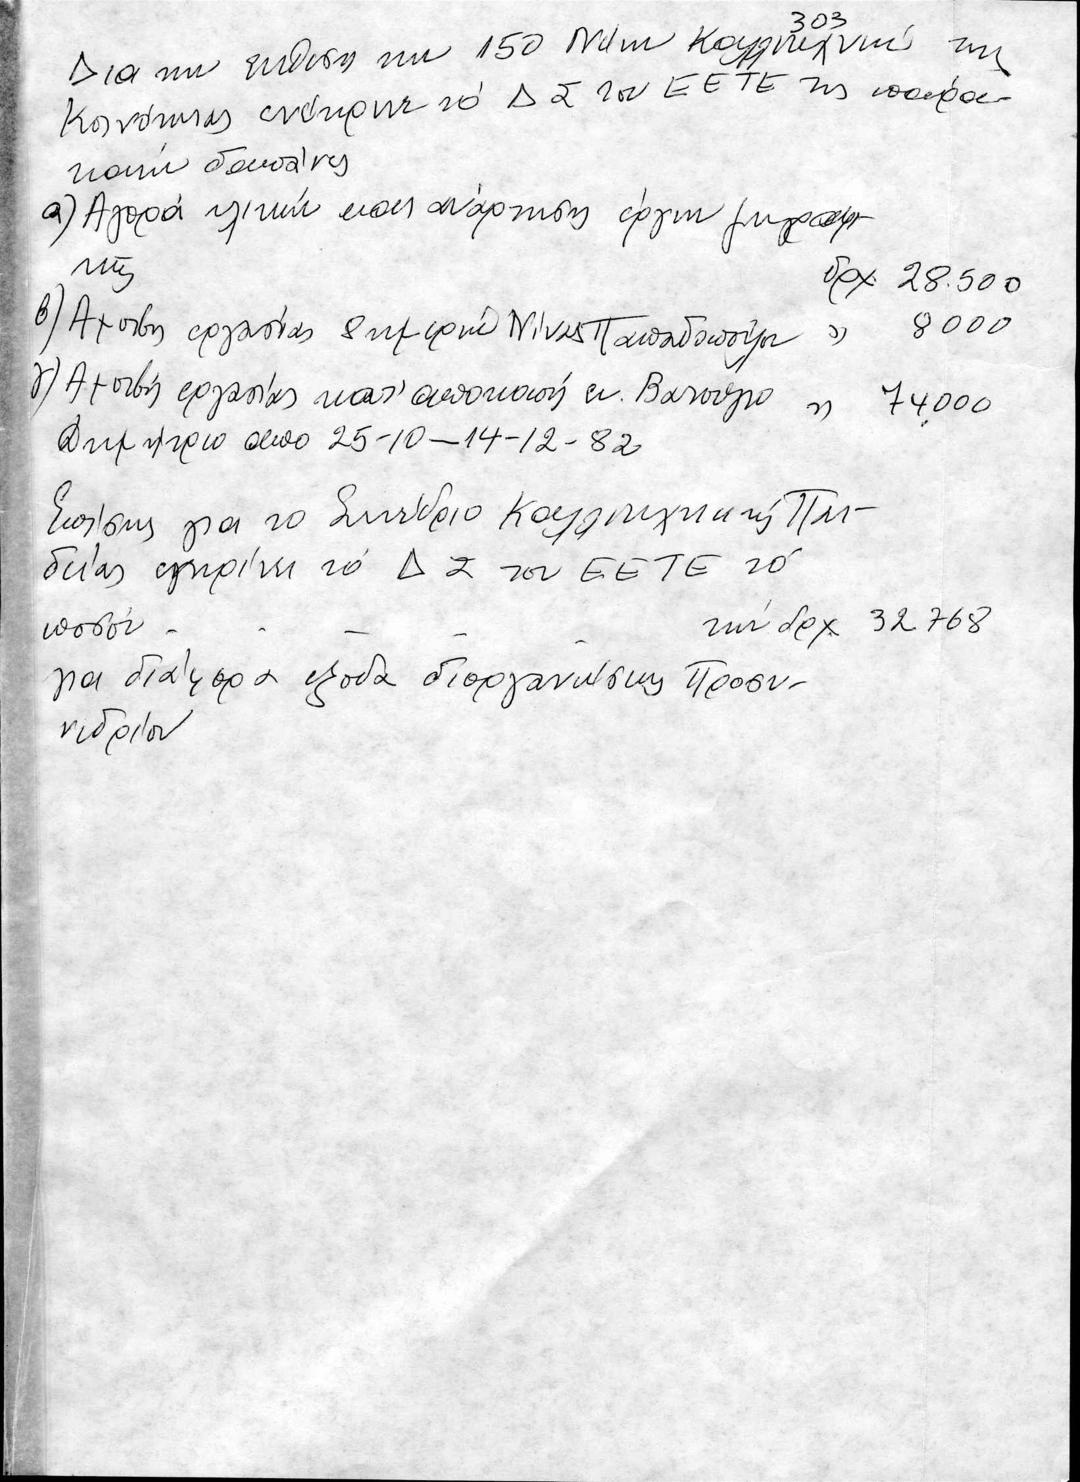 303
Δια την έκθεση των 150 Νέων Καλλιτεχνών της
Κοινότητας ενέκρινε τό ΔΣ του ΕΕΤΕ τις παρα-
κατω δαπάνες
α) Αγορά υλικών και ανάρτηση έργων ζωγραφι-
κης δρχ. 28.500
β) Αμοιβη εργασίας 8 ημερών Νίνας Παπαδοπούλου " 8000
γ) Αμοιβή εργασίας κατ' αποκοπή κ. Βατουγιο " 74.000
Δημήτριο απο 25-10-14-12-82
Επίσης για το Συνέδριο Καλλιτεχνικής Παι-
δείας εγκρίνει τό ΔΣ του ΕΕΤΕ τό
ποσόν - - - - - των δρχ 32768
για διάφορα εξοδα διοργανώσεως Προσυ-
νεδρίου